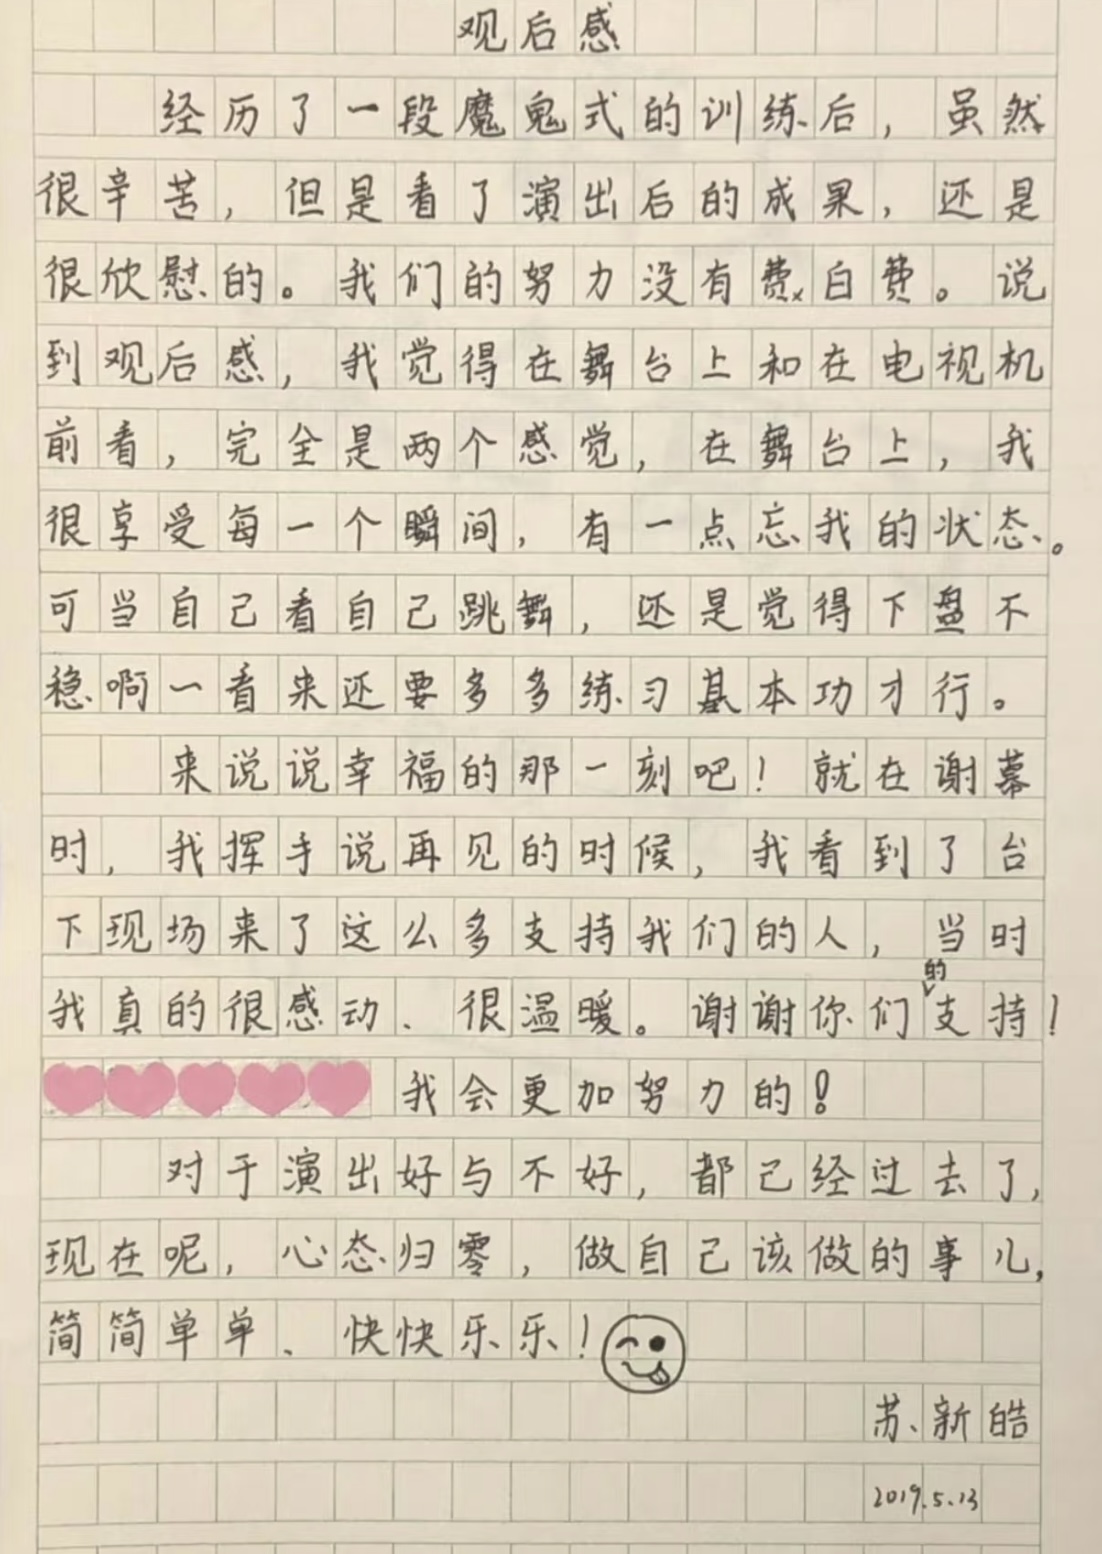 观后感
经历了一段魔鬼式的训练后，虽然
很辛苦，但是看了演出后的成果，还是
很欣慰的。我们的努力没有费白费。说
到观后感，我觉得在舞台上和在电视机
前看，完全是两个感觉，在舞台上，我
很享受每一个瞬间，有一点忘我的状态。
可当自己看自己跳舞，还是觉得下盘不
稳啊一看来还要多多练习基本功才行。
来说说幸福的那一刻吧！就在谢幕
时，我挥手说再见的时候，我看到了台
下现场来了这么多支持我们的人，当时
我真的很感动、很温暖。谢谢你们的支持！
我会更加努力的！
对于演出好与不好，都己经过去了，
现在呢，心态归零，做自己该做的事儿，
简简单单、快快乐乐！
苏新皓
2019.5.13